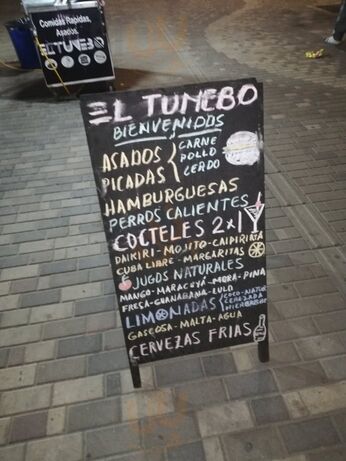 Comidas Rapidas,
Asados.
ELTUNEBO
EL TUNEBO
BIENVENIDOS
ASADOS
PICADAS
CARNE
POLLO
CERDO
HAMBURGUESAS
PERROS CALIENTES
COCTELES 2x1
DAIKIRI-MOJITO-CAIPIRIÑA
CUBA LIBRE-MARGARITAS
JUGOS NATURALES
MANGO-MARACUYÁ-MORA-PIÑA
FRESA-GUANABANA-LULO
LIMONADAS
COCO-NATUR
CEREZADA
HIERBABUENA
GASEOSA-MALTA-AGUA
CERVEZAS FRIAS